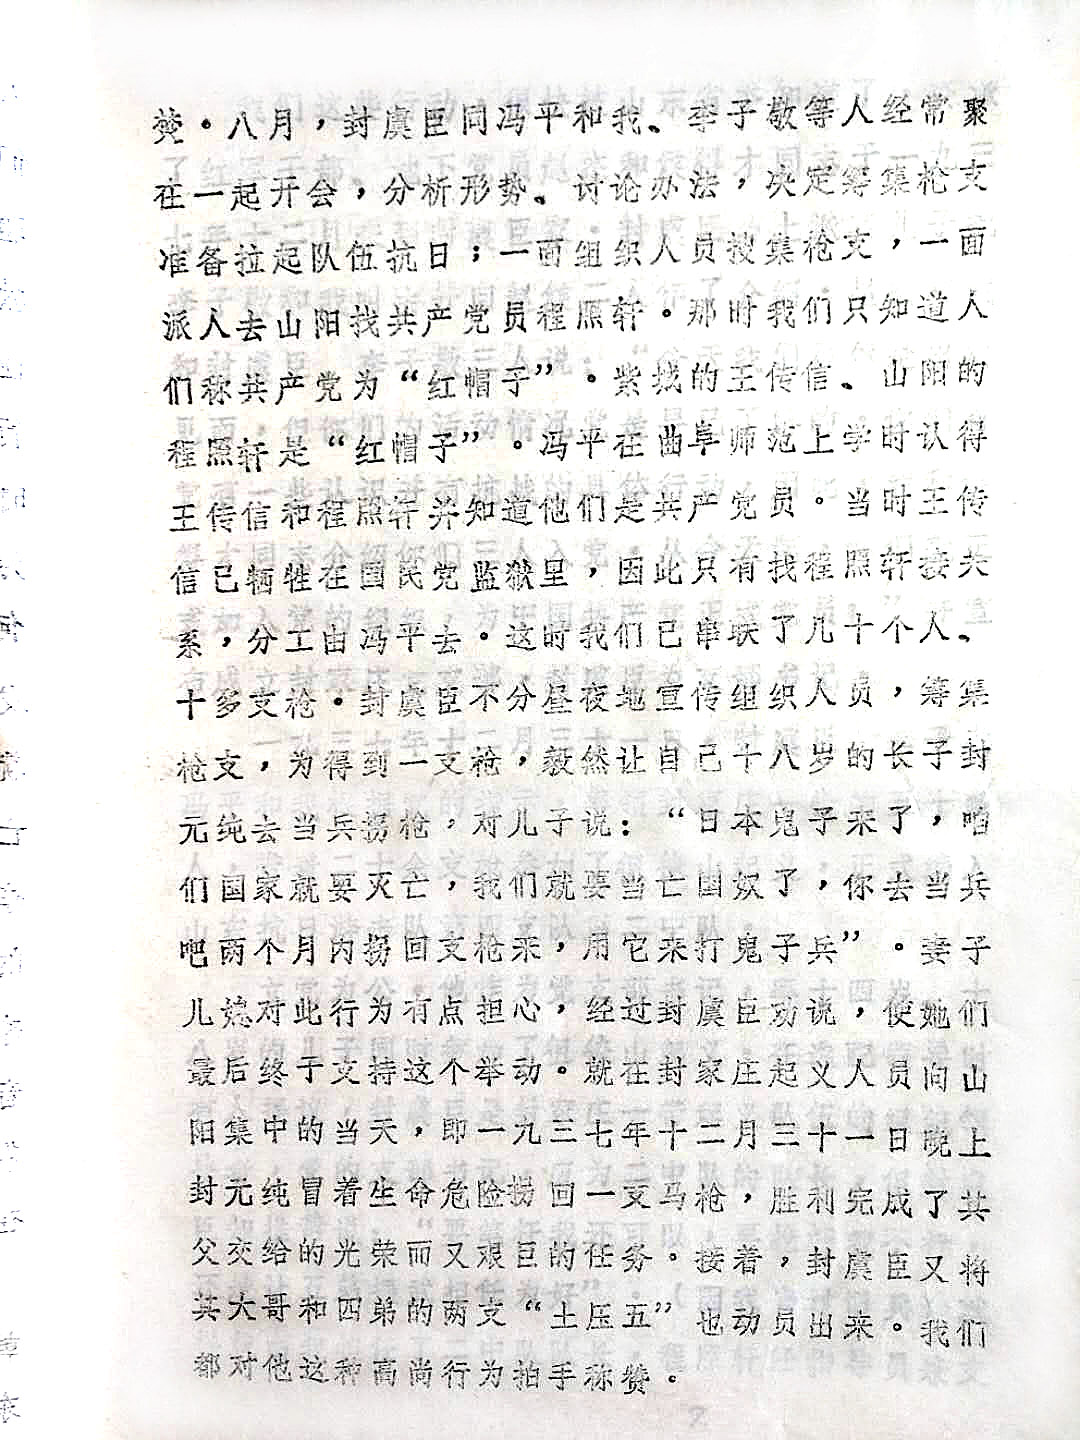 焚。八月，封虞臣同冯平和我、李子敬等人经常聚
在一起开会，分析形势、讨论办法，决定筹集枪支
准备拉起队伍抗日；一面组织人员搜集枪支，一面
派人去山阳找共产党员程照轩。那时我们只知道人
们称共产党为“红帽子”。紫城的王传信、山阳的
程照轩是“红帽子”。冯平在曲阜师范上学时认得
王传信和程照轩并知道他们是共产党员。当时王传
信已牺牲在国民党监狱里，因此只有找程照轩接关
系，分工由冯平去。这时我们已串联了几十个人、
十多支枪。封虞臣不分昼夜地宣传组织人员，筹集
枪支，为得到一支枪，毅然让自己十八岁的长子封
元纯去当兵拐枪，对儿子说：“日本鬼子来了，咱
们国家就要灭亡，我们就要当亡国奴了，你去当兵
吧两个月内拐回支枪来，用它来打鬼子兵”。妻子
儿媳对此行为有点担心，经过封虞臣劝说，使她们
最后终于支持这个举动。就在封家庄起义人员向山
阳集中的当天，即一九三七年十二月三十一日晚上
封元纯冒着生命危险拐回一支马枪，胜利完成了其
父交给的光荣而又艰巨的任务。接着，封虞臣又将
其大哥和四弟的两支“土压五”也动员出来。我们
都对他这种高尚行为拍手称赞。